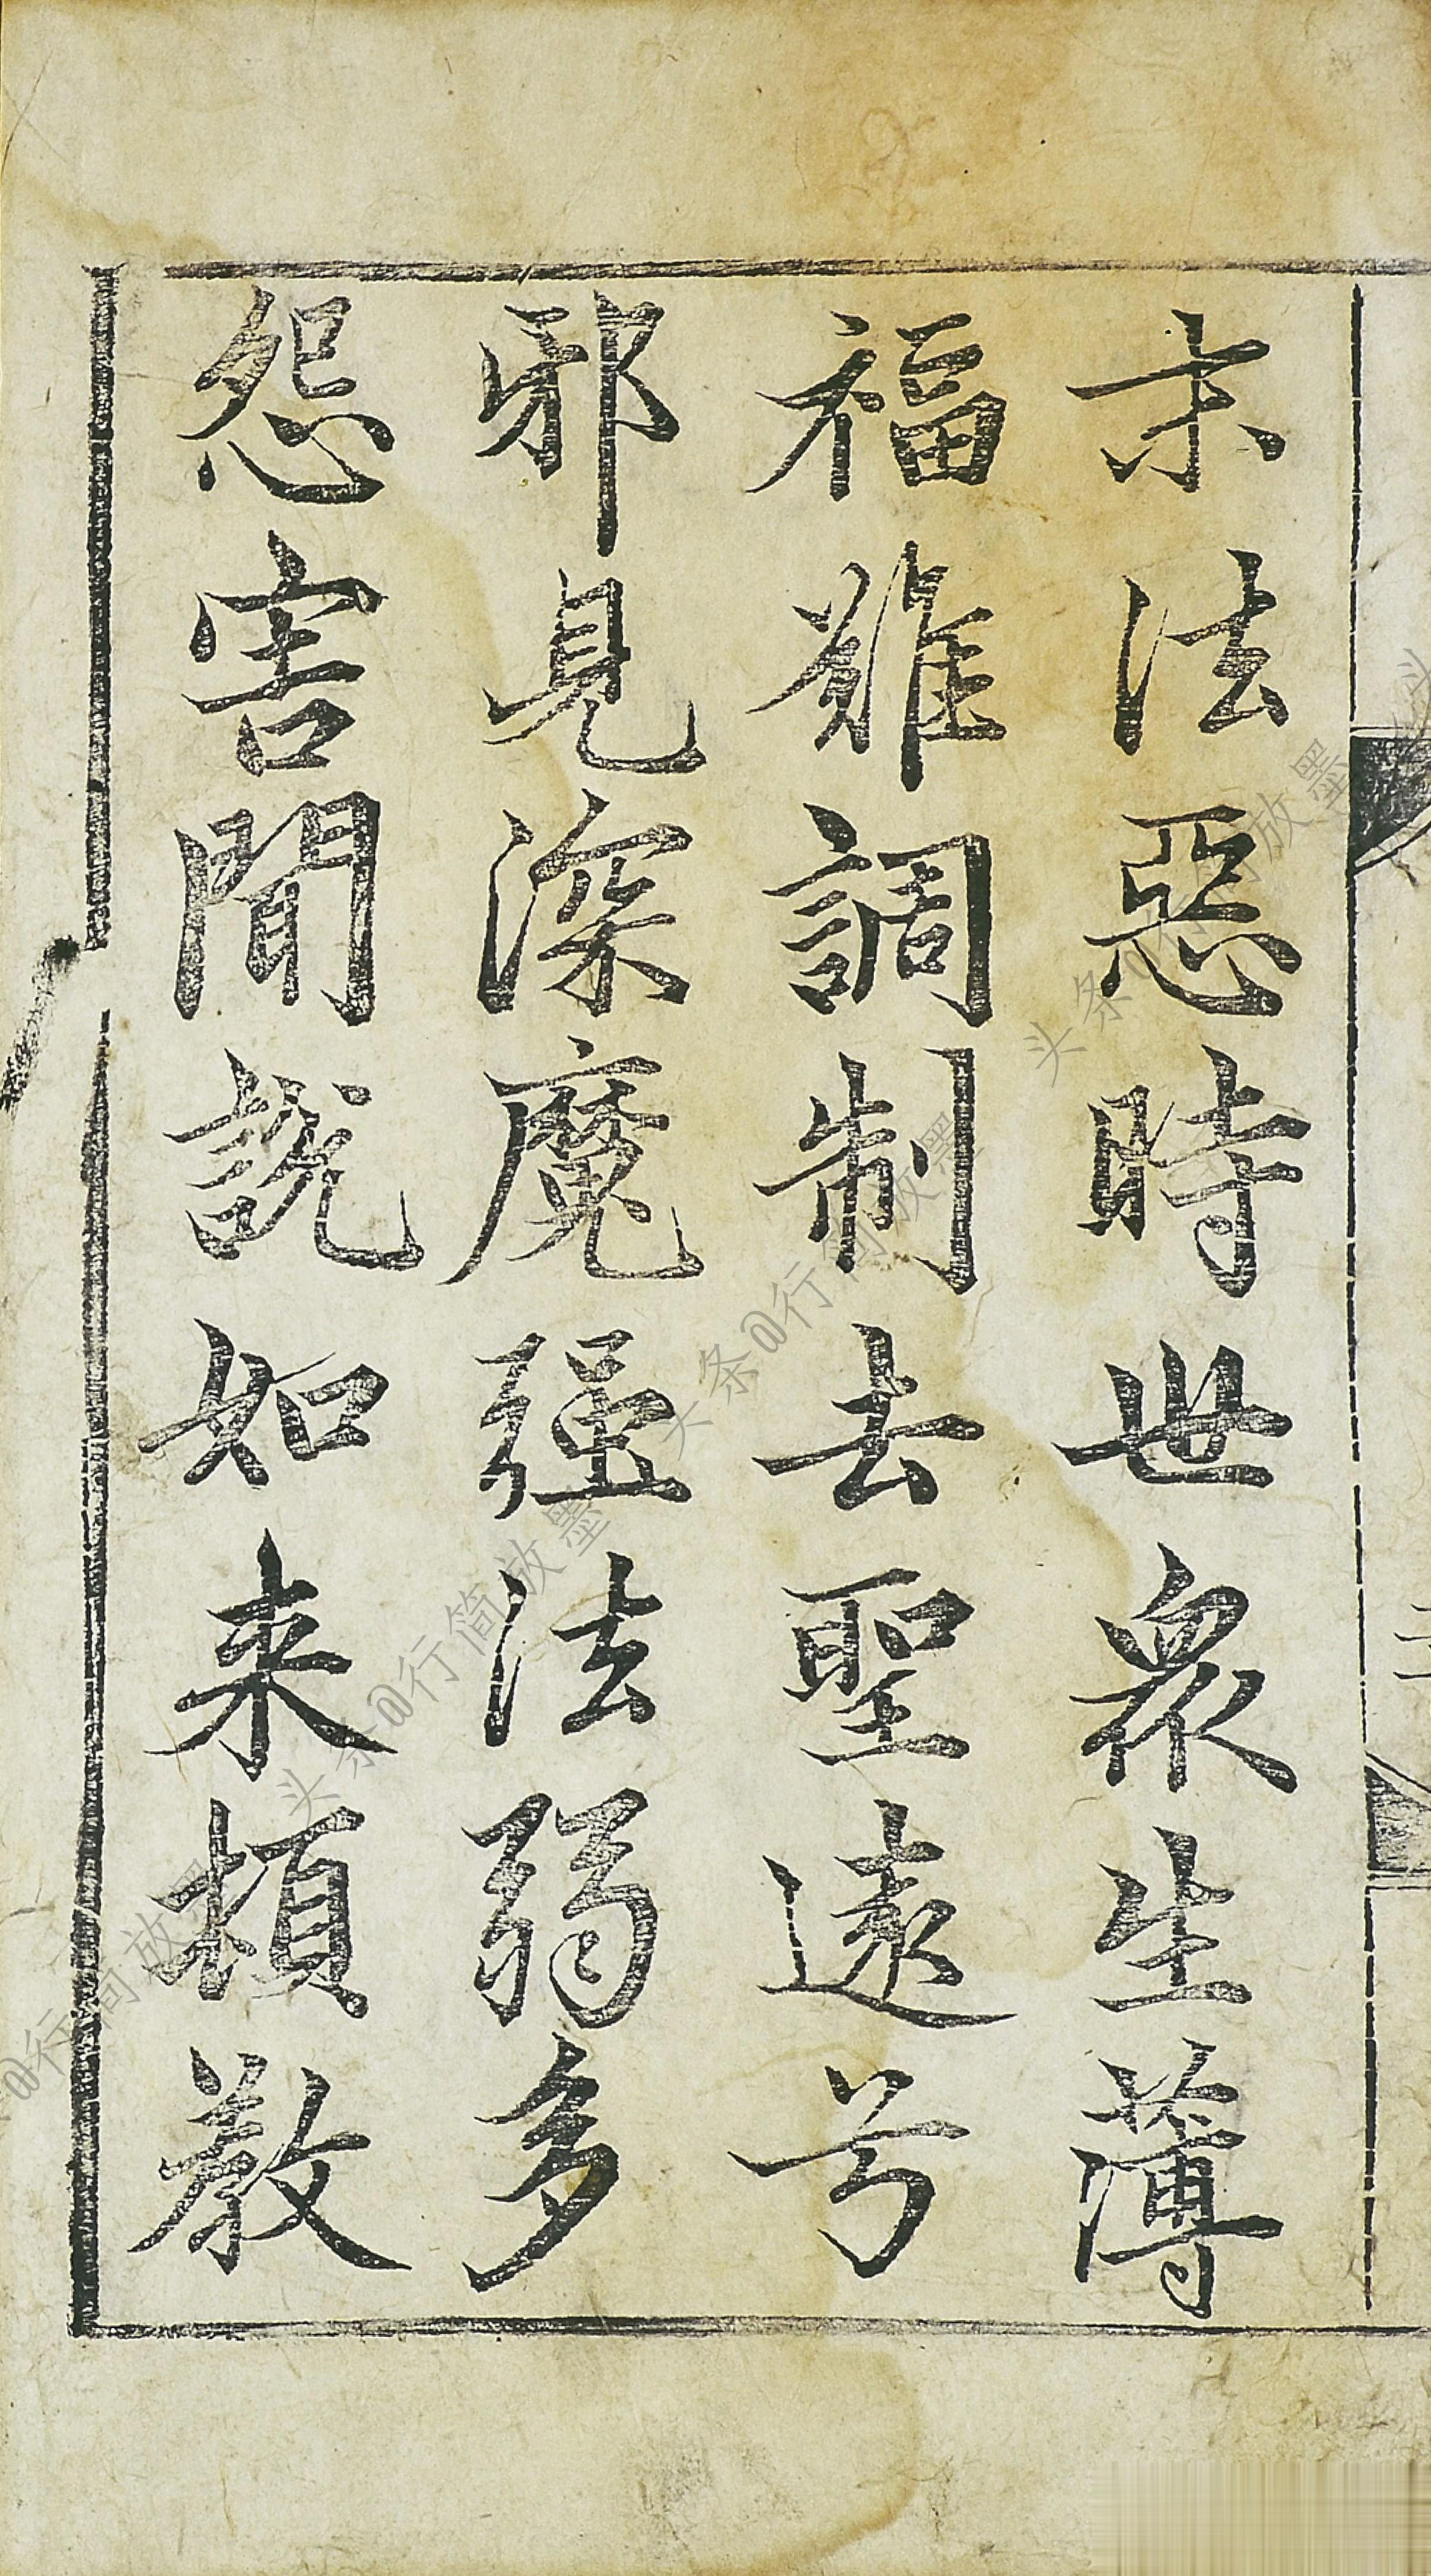 末法惡時世眾生薄
福難調制去聖遠兮
邪見深魔强法弱多
怨害聞說如来頓教
头条@行简放墨
头条@行简放墨
头条@行简放墨
@行简放墨